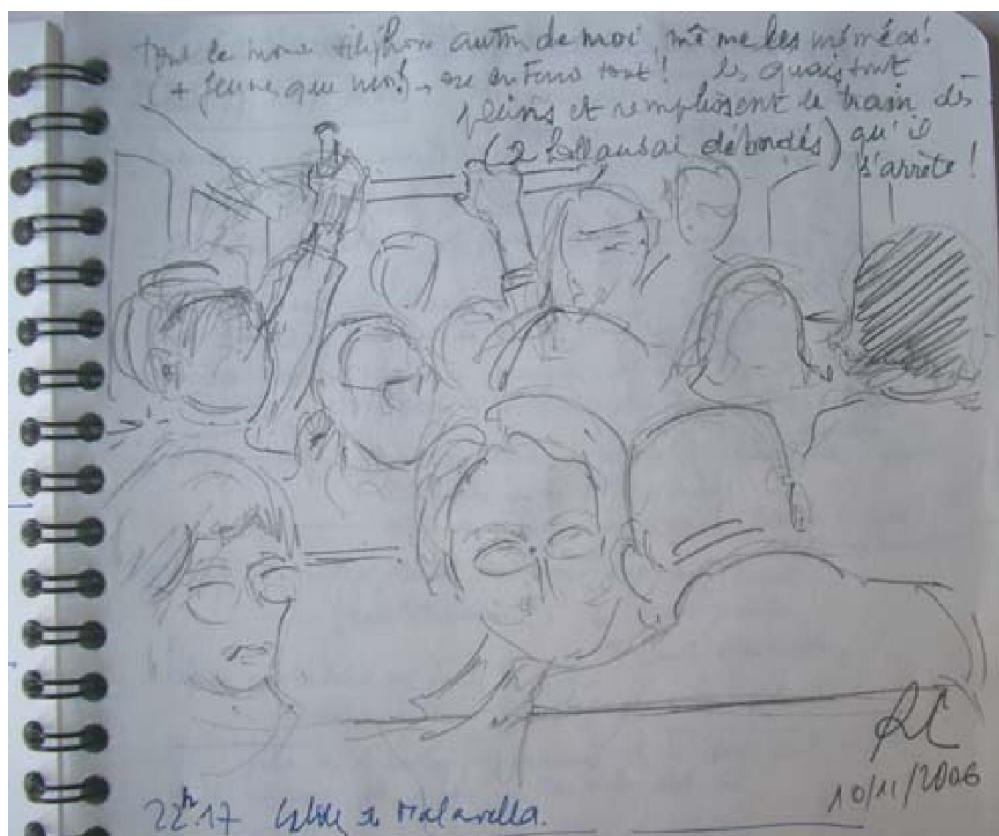 tout le monde téléphone autour de moi, même les mémées!
(+ jeune que moi!) → en tout!
les quais sont
pleins et remplissent le train dès
(2 débordés) qu'il
s'arrête!
RC
10/11/2006
22h17 Caldes de Malavella.